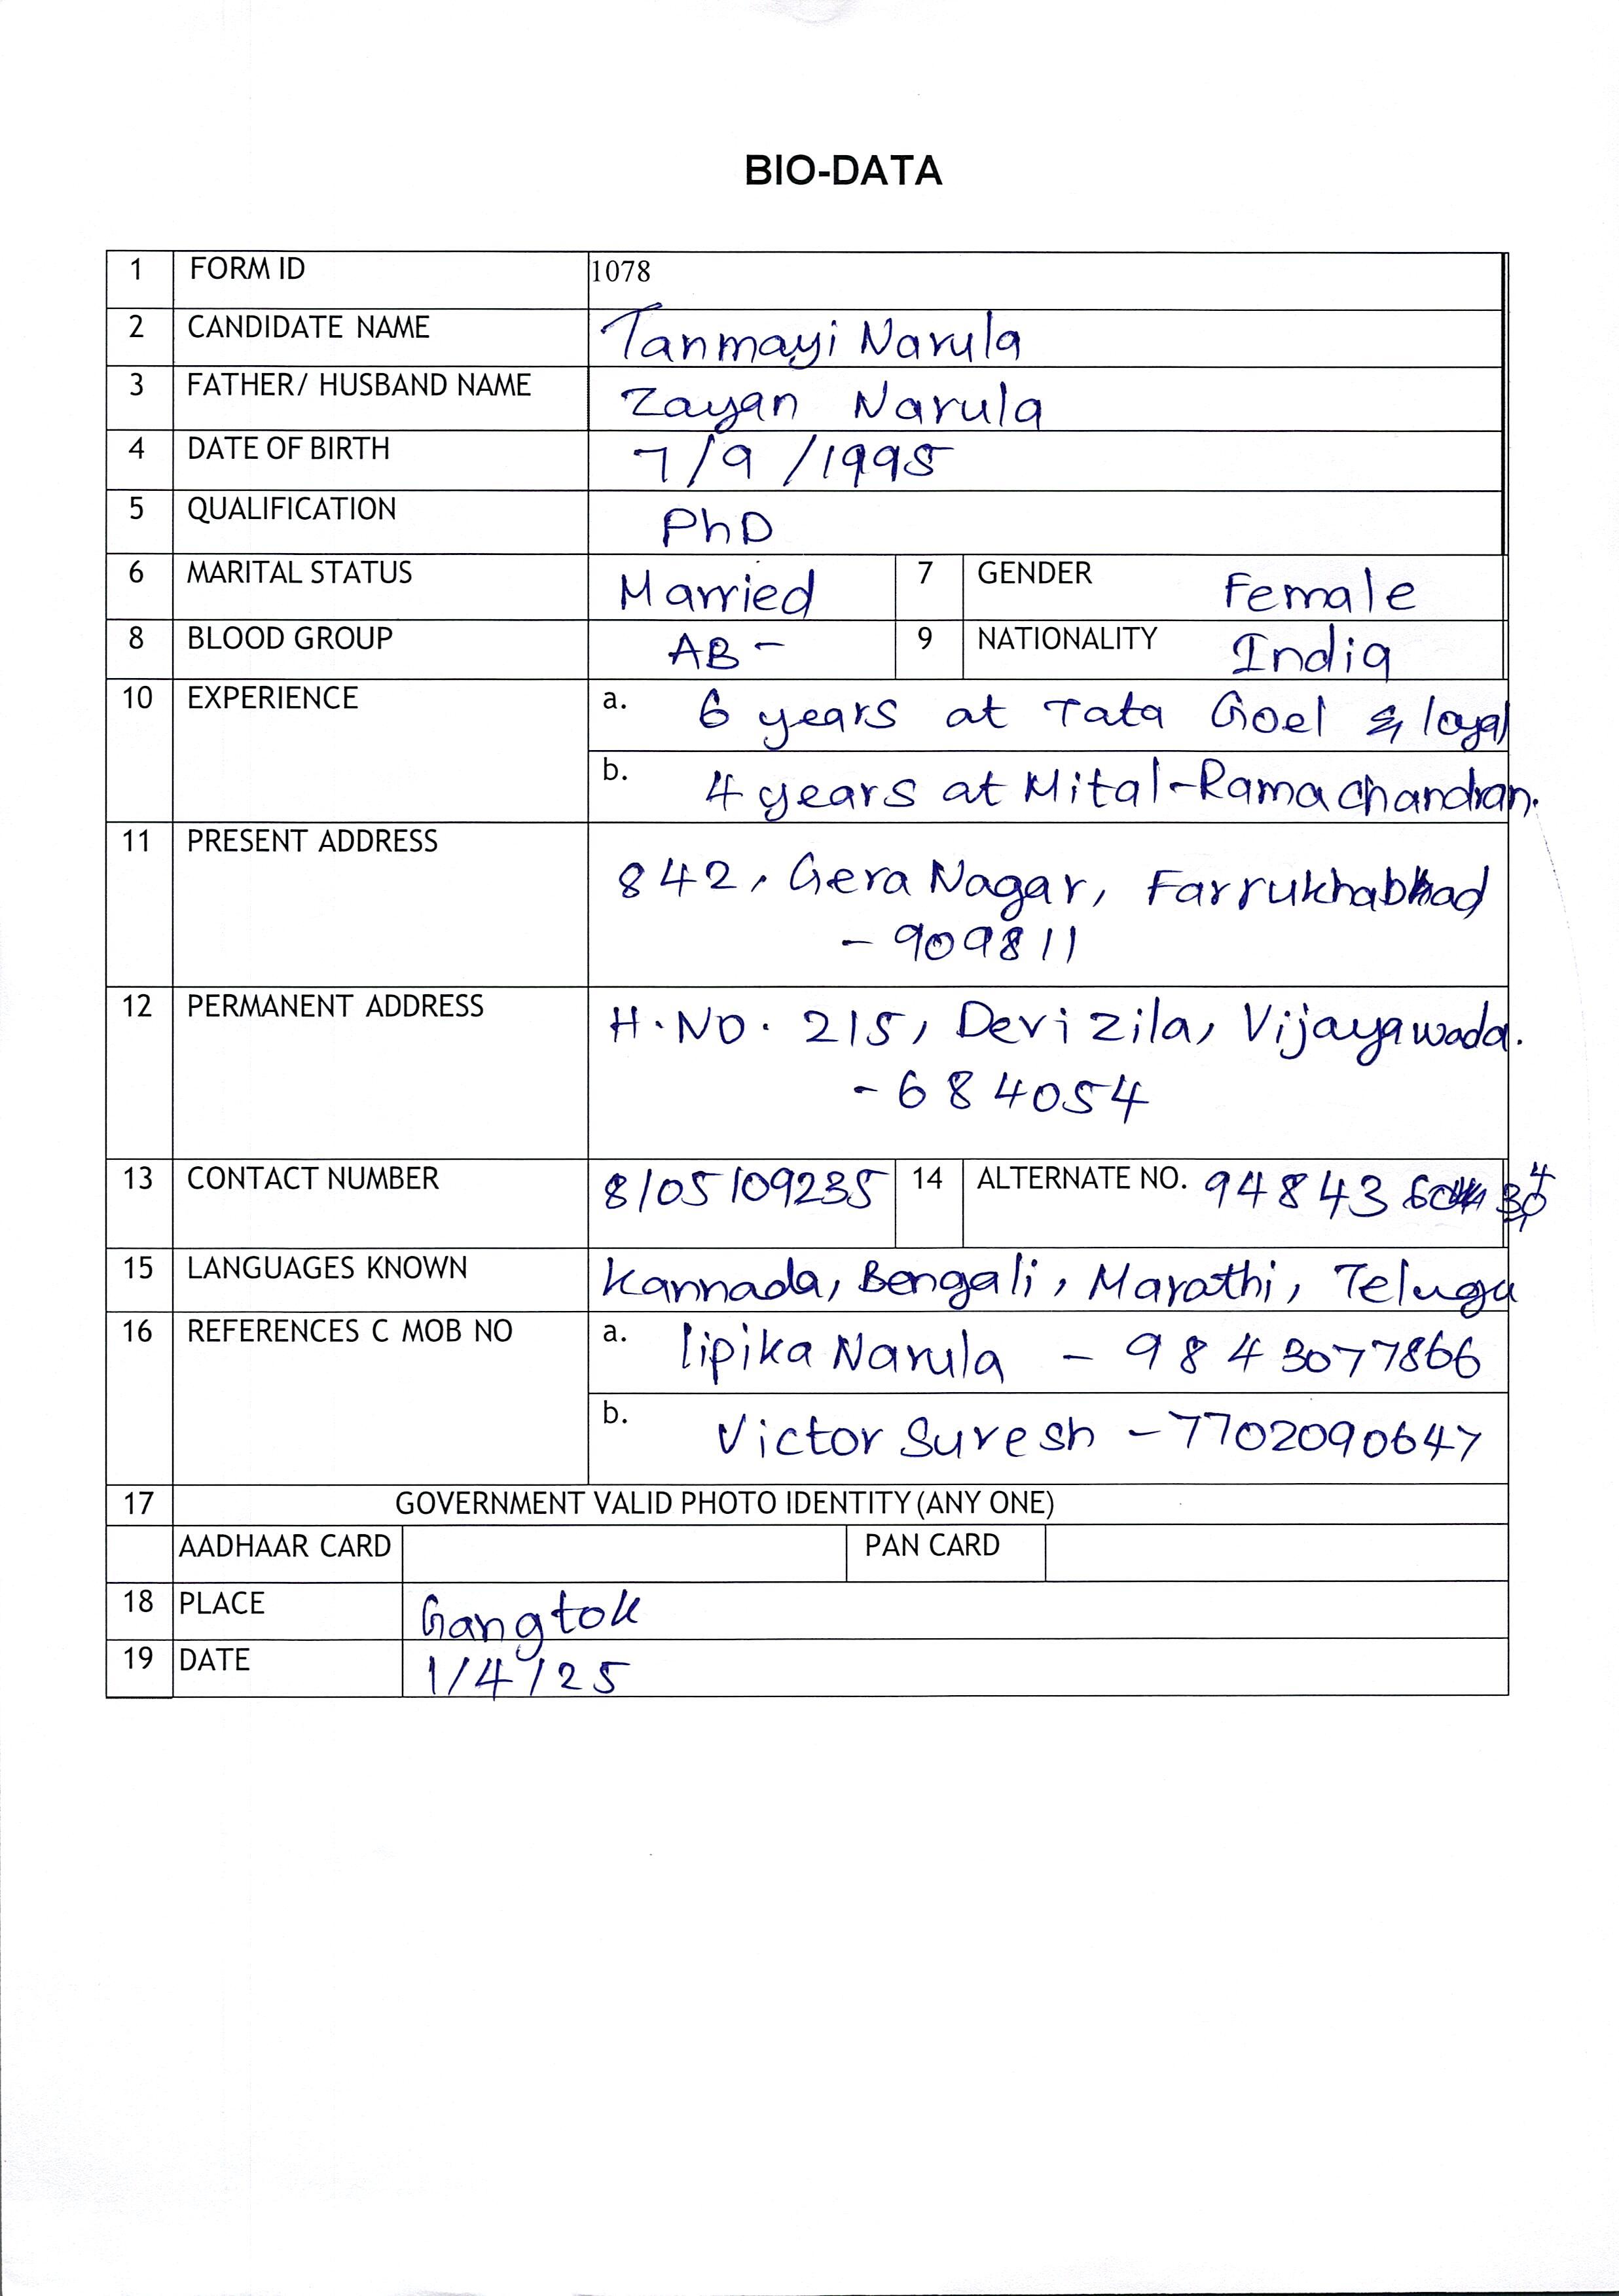 BIO-DATA
1 FORM ID 1078
2 CANDIDATE NAME Tanmayi Narula
3 FATHER/ HUSBAND NAME Zayan Narula
4 DATE OF BIRTH 7/9/1995
5 QUALIFICATION PhD
6 MARITAL STATUS Married 7 GENDER Female
8 BLOOD GROUP AB- 9 NATIONALITY India
10 EXPERIENCE a. 6 years at Tata Goel & loyal
b. 4 years at Mital-Ramachandran.
11 PRESENT ADDRESS
842, Gera Nagar, Farrukhabad
- 909811
12 PERMANENT ADDRESS H.NO. 215, Devi Zila, Vijayawada.
- 684054
13 CONTACT NUMBER 8105109235 14 ALTERNATE NO.
15 LANGUAGES KNOWN Kannada, Bengali, Marathi, Telugu
16 REFERENCES C MOB NO a. lipika Narula - 9843077866
b. Victor Suresh - 7702090647
17 GOVERNMENT VALID PHOTO IDENTITY (ANY ONE)
AADHAAR CARD PAN CARD
18 PLACE Gangtok
19 DATE 1/4/25